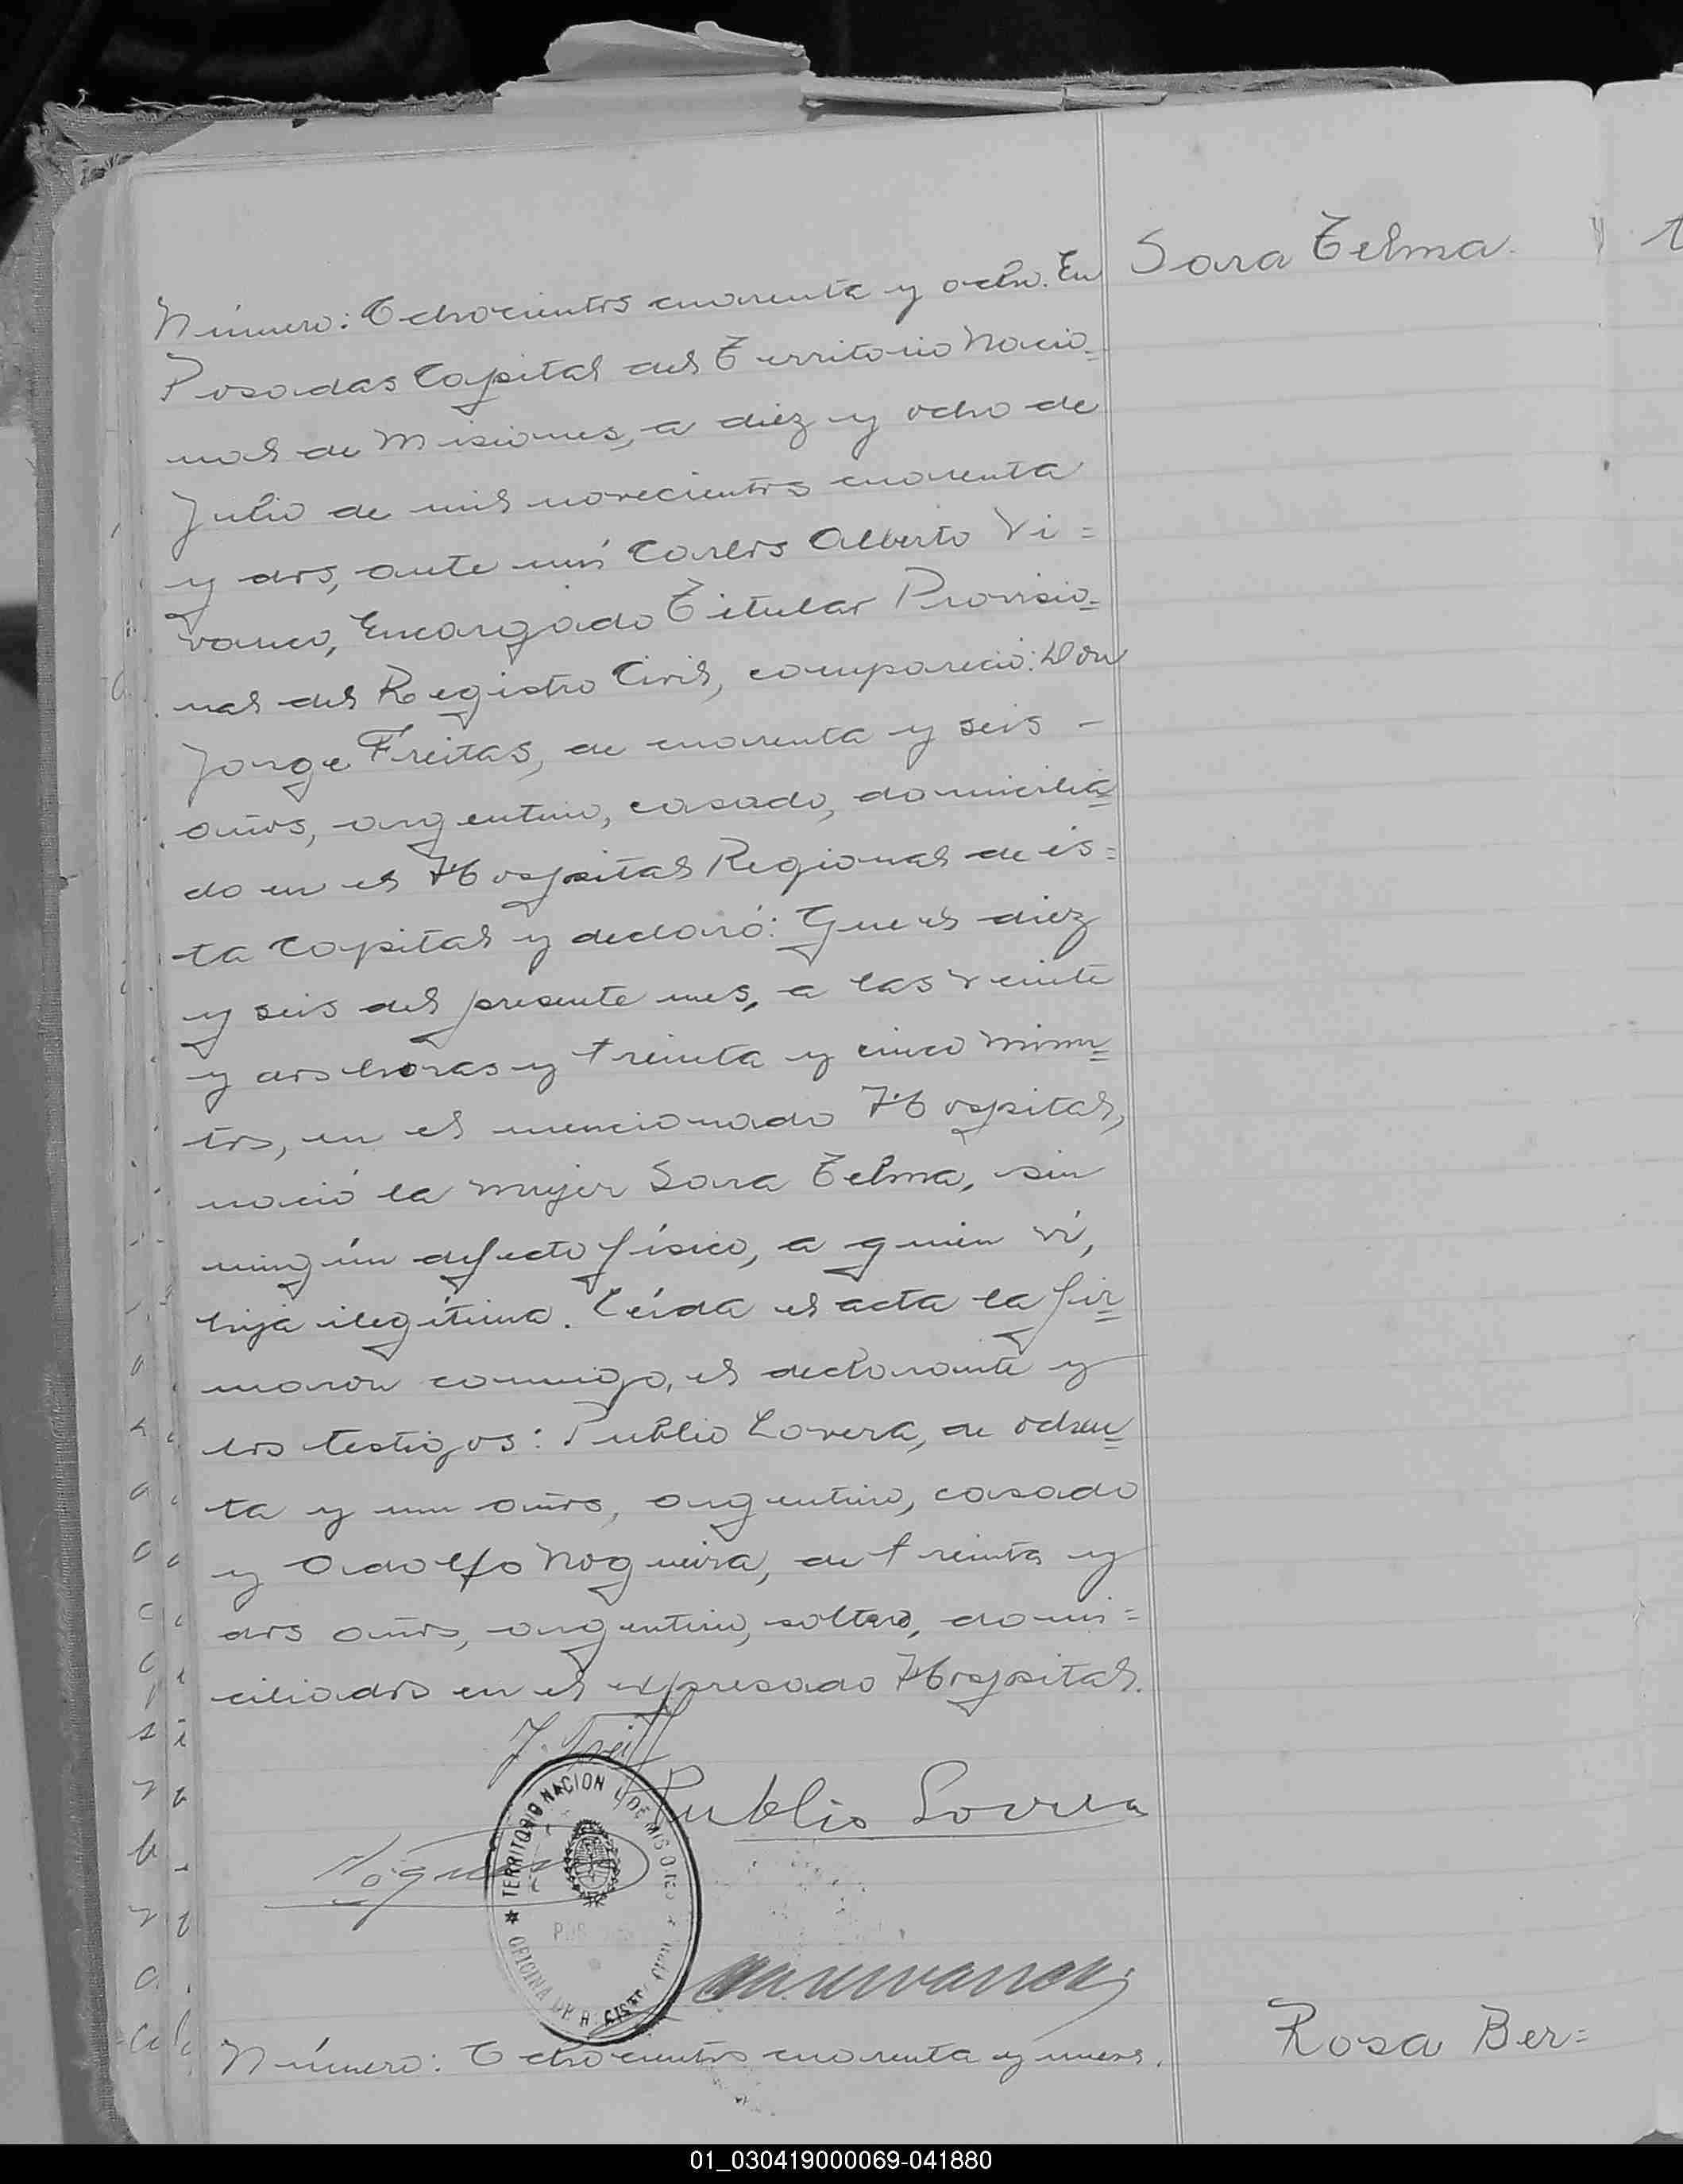 Sara Telma.
Número: Ochocientos cuarenta y ocho. En
Posadas Capital del Territorio Nacio=
nal de Misiones, a diez y ocho de
Julio de mil novecientos cuarenta
y dos, ante mí Carlos Alberto Vi=
vanco, Encargado Titular Provisio=
nal del Registro Civil, compareció: Don
Jorge Freitas, de cuarenta y seis -
años, argentino, casado, domicilia=
do en el Hospital Regional de es=
ta Capital y declaró: Que el diez
y seis del presente mes, a las veinte
y dos horas y treinta y cinco minu=
tos, en el mencionado Hospital,
nació la mujer Sara Telma, sin
ningún defecto físico, a quien ví,
hija ilegítima. Leída el acta la fir=
maron conmigo, el declarante y
los testigos: Publio Lovera, de ochen=
ta y un años, argentino, casado
y Adolfo Nogueira, de treinta y
dos años, argentino, soltero, domi=
ciliados en el expresado Hospital.
J. Freitas
Publio Lovera
TERRITORIO NACION L DE MISIONES
OFICINA DE REGISTRO CIVIL
Número: Ochocientos cuarenta y nueve.
Rosa Ber=
01_030419000069-041880